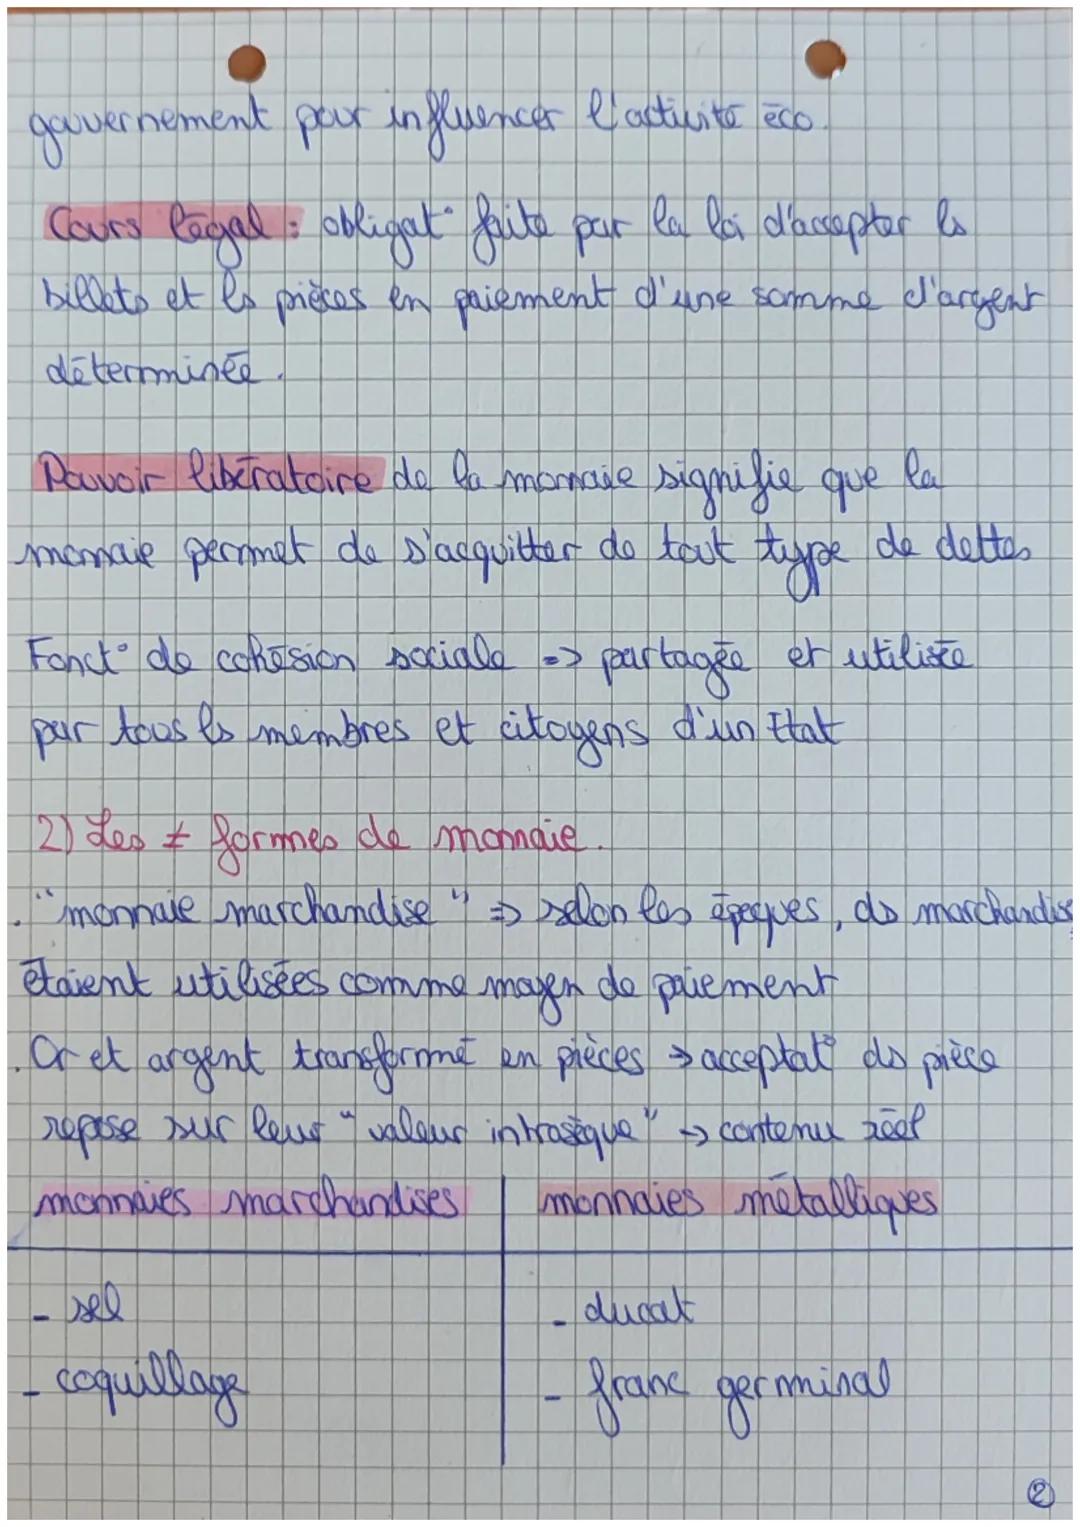 gouvernement pour influencer l'activité éco.
Cours légal : obligat° faite par la loi d'accepter ls
billets et ls pièces en paiement d'une somme d'argent
déterminée.
Pouvoir libératoire de la monnaie signifie que la
monnaie permet de s'acquitter de tout type de dettes
Fonct° de cohésion sociale => partagée et utilisée
par tous ls membres et citoyens d'un Etat
2) Les ≠ formes de monnaie.
. "monnaie marchandise" => selon les époques, ds marchandises
étaient utilisées comme moyen de paiement
. Or et argent transformé en pièces → acceptat° ds pièce
repose sur leur "valeur intrasèque" → contenu réel
monnaies marchandises | monnaies métalliques
- sel - ducat
- coquillage - franc germinal
②